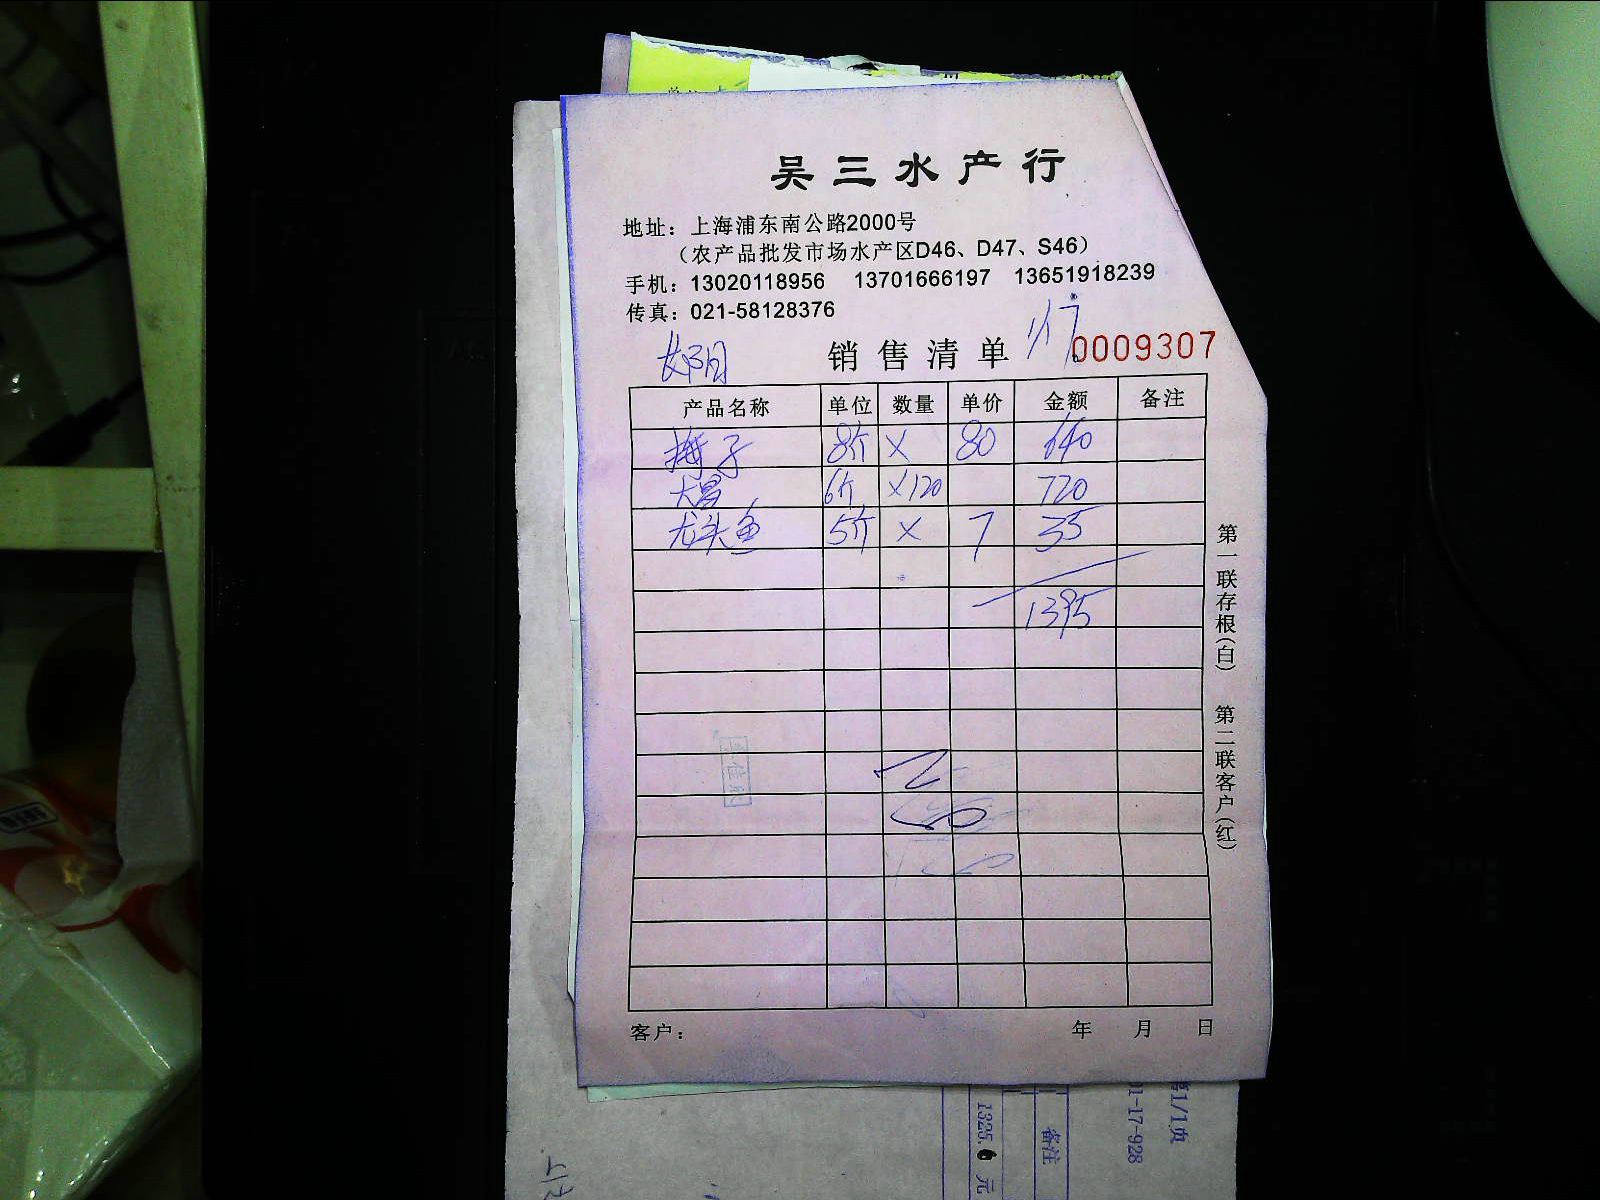 吴三水产行
地址：上海浦东南公路2000号
（农产品批发市场水产区D46、D47、S46）
手机：13020118956 13701666197 13651918239
传真：021-58128376
销售清单 1/17 0009307
产品名称 单位 数量 单价 金额 备注
梅子 8斤 X 80 640
大昌 6斤 X120 720
龙头鱼 5斤 X 7 35
1395
第一联存根（白） 第二联客户（红）
客户： 年 月 日
第1/1页
01-17-928
备注
1325.0 元